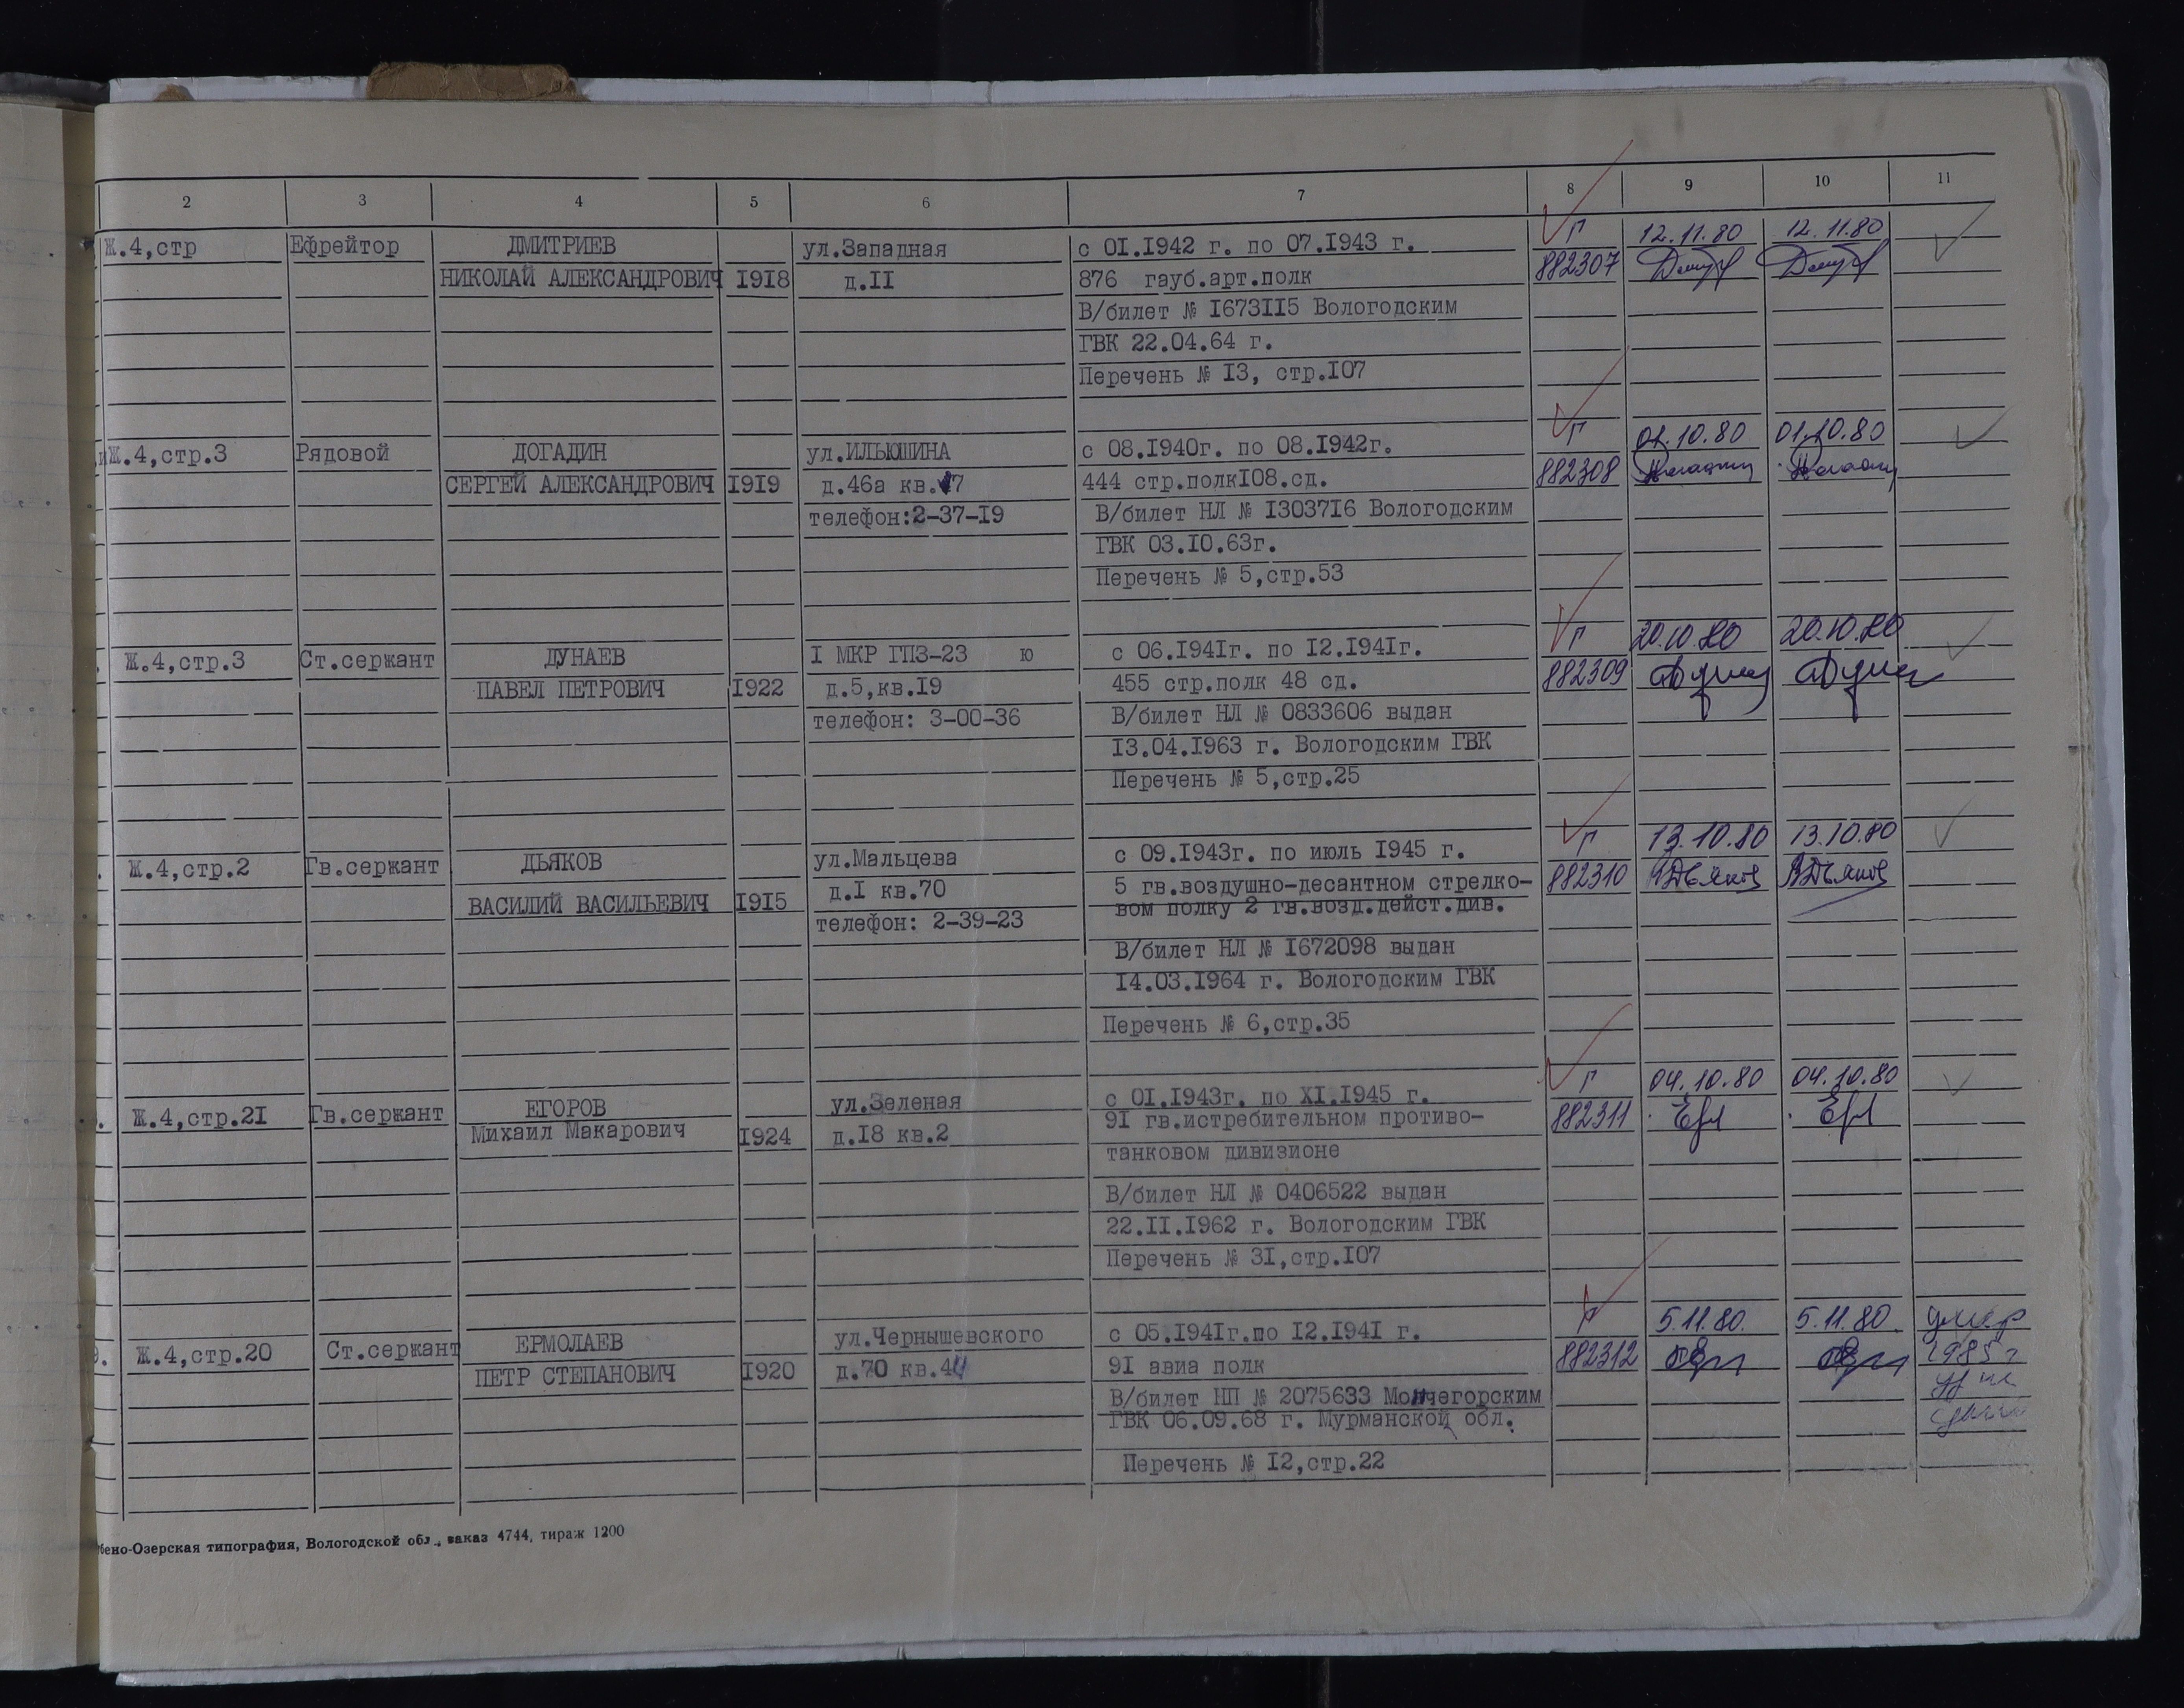 2 3 4 5 6 7 8 9 10 11
Ж.4,стр Ефрейтор ДМИТРИЕВ ул.Западная с 01.1942 г. по 07.1943 г. Г 12.11.80 12.11.80
НИКОЛАЙ АЛЕКСАНДРОВИЧ 1918 д.11 876 гауб.арт.полк 882307
В/билет № 1673115 Вологодским
ГВК 22.04.64 г.
Перечень № 13, стр.107
Ж.4,стр.3 Рядовой ДОГАДИН ул.ИЛЬЮШИНА с 08.1940г. по 08.1942г. Г 01.10.80 01.10.80
СЕРГЕЙ АЛЕКСАНДРОВИЧ 1919 д.46а кв.17 444 стр.полк108.сд. 882308
телефон:2-37-19 В/билет НЛ № 1303716 Вологодским
ГВК 03.10.63г.
Перечень № 5,стр.53
Ж.4,стр.3 Ст.сержант ДУНАЕВ 1 МКР ГПЗ-23 ю с 06.1941г. по 12.1941г. Г 20.10.80 20.10.80
ПАВЕЛ ПЕТРОВИЧ 1922 д.5,кв.19 455 стр.полк 48 сд. 882309
телефон: 3-00-36 В/билет НЛ № 0833606 выдан
13.04.1963 г. Вологодским ГВК
Перечень № 5,стр.25
Ж.4,стр.2 Гв.сержант ДЬЯКОВ ул.Мальцева с 09.1943г. по июль 1945 г. Г 13.10.80 13.10.80
ВАСИЛИЙ ВАСИЛЬЕВИЧ 1915 д.1 кв.70 5 гв.воздушно-десантном стрелко- 882310 ВДьяков ВДьяков
телефон: 2-39-23 вом полку 2 гв.возд.дейст.див.
В/билет НЛ № 1672098 выдан
14.03.1964 г. Вологодским ГВК
Перечень № 6,стр.35
Ж.4,стр.21 Гв.сержант ЕГОРОВ ул.Зеленая с 01.1943г. по XI.1945 г. Г 04.10.80 04.10.80
Михаил Макарович 1924 д.18 кв.2 91 гв.истребительном противо- 882311
танковом дивизионе
В/билет НЛ № 0406522 выдан
22.11.1962 г. Вологодским ГВК
Перечень № 31,стр.107
Ж.4,стр.20 Ст.сержант ЕРМОЛАЕВ ул.Чернышевского с 05.1941г.по 12.1941 г. Г 5.11.80. 5.11.80. умер
ПЕТР СТЕПАНОВИЧ 1920 д.70 кв.44 91 авиа полк 882312 1985 г
В/билет НП № 2075633 Мончегорским
ГВК 06.09.68 г. Мурманской обл.
Перечень № 12,стр.22
бено-Озерская типография, Вологодской обл., заказ 4744, тираж 1200